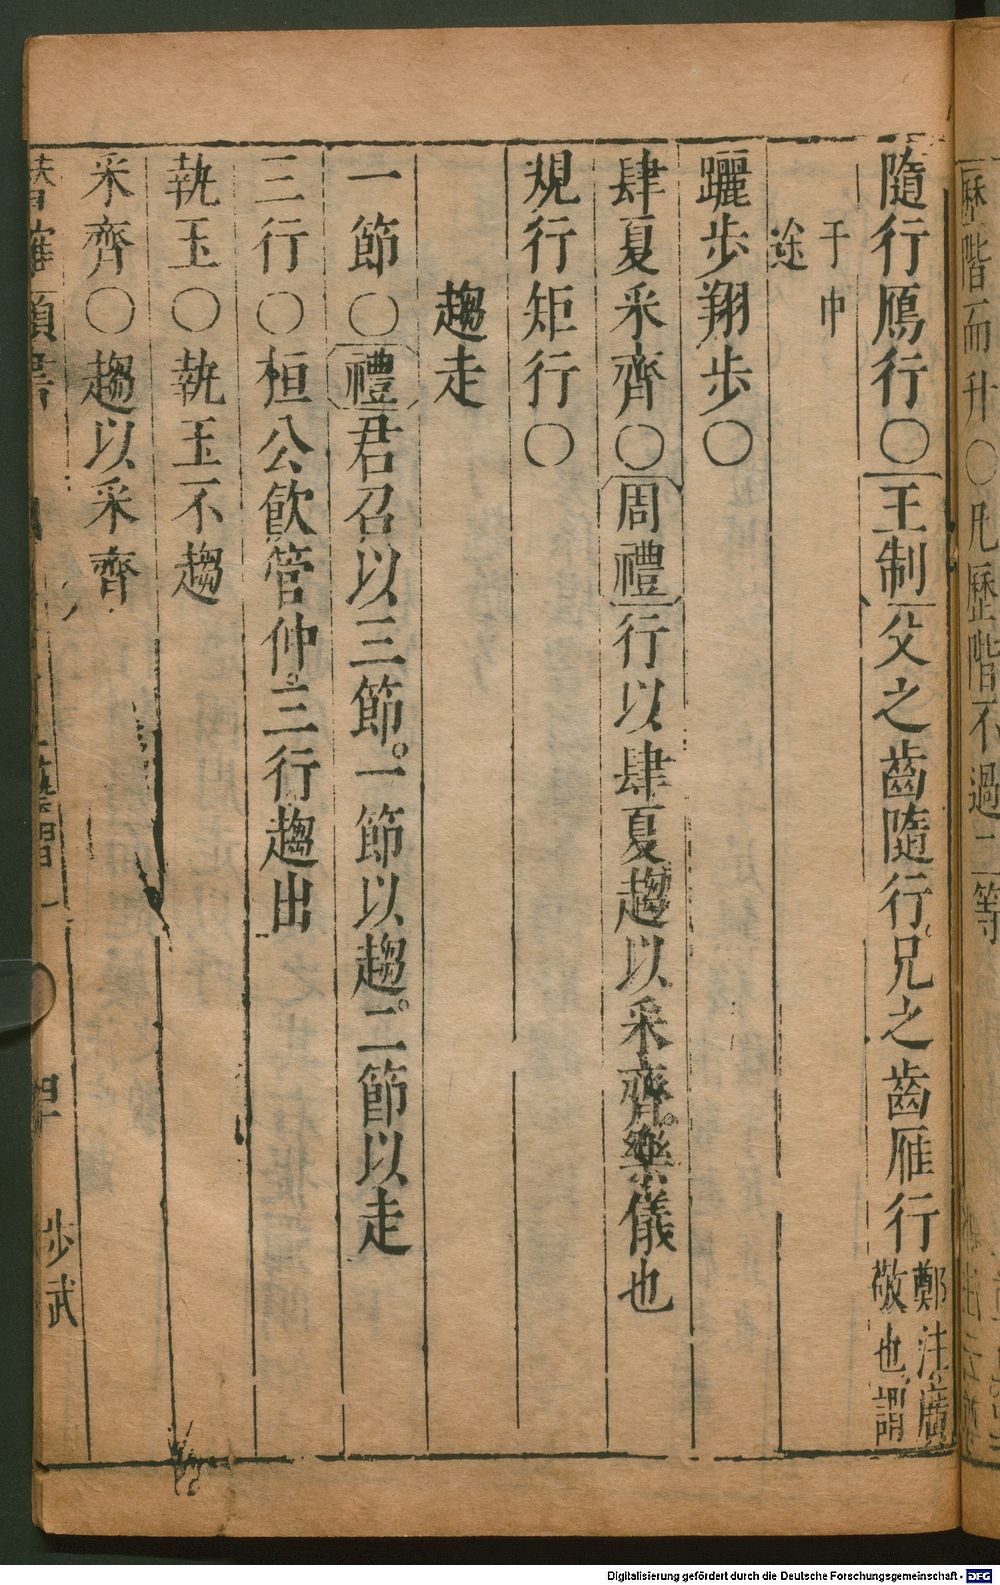 歷階而升○凡歷階不過二等
隨行鴈行○王制父之齒隨行兄之齒雁行鄭注廣敬也謂
于巾
途
躧步翔步○
肆夏采齊○周禮行以肆夏趨以采齊樂儀也
規行矩行○
趨走
一節○禮君召以三節一節以趨二節以走
三行○桓公飲管仲三行趨出
執玉○執玉不趨
采齊○趨以采齊
類書
步武
Digitalisierung gefördert durch die Deutsche Forschungsgemeinschaft - DFG